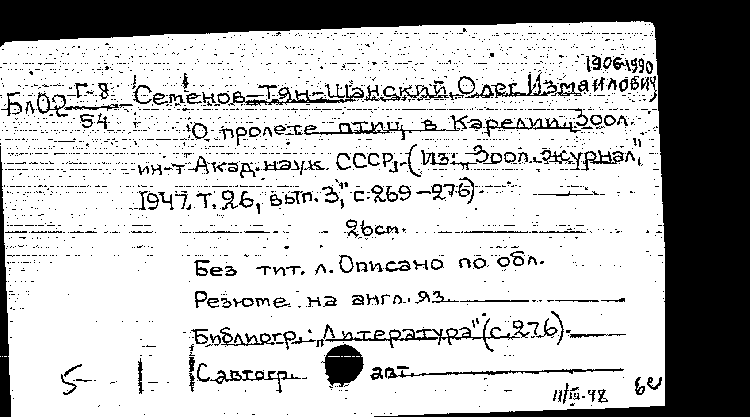 1906-1990
БлОр Г-8/54 Семенов-Тян-Шанский, Олег Измаилович,
О пролете птиц в Карелии, Зоол.
ин-т Акад. наук СССР, (Из: „Зоол. журнал",
1947, т. 26, вып. 3," с. 269-276).
26 cm.
Без тит. л. Описано по обл.
Резюме на англ. яз.
Библиогр.: „Литература" (с. 276).
5 С автогр. авт.
11/III-48